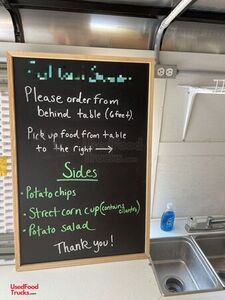 Please order from
behind table (6 feet).
Pick up food from table
to the right →
Sides
• Potato chips
• Street corn cup (contains cilantro)
• Potato salad
Thank you!
UsedFood
Trucks.com